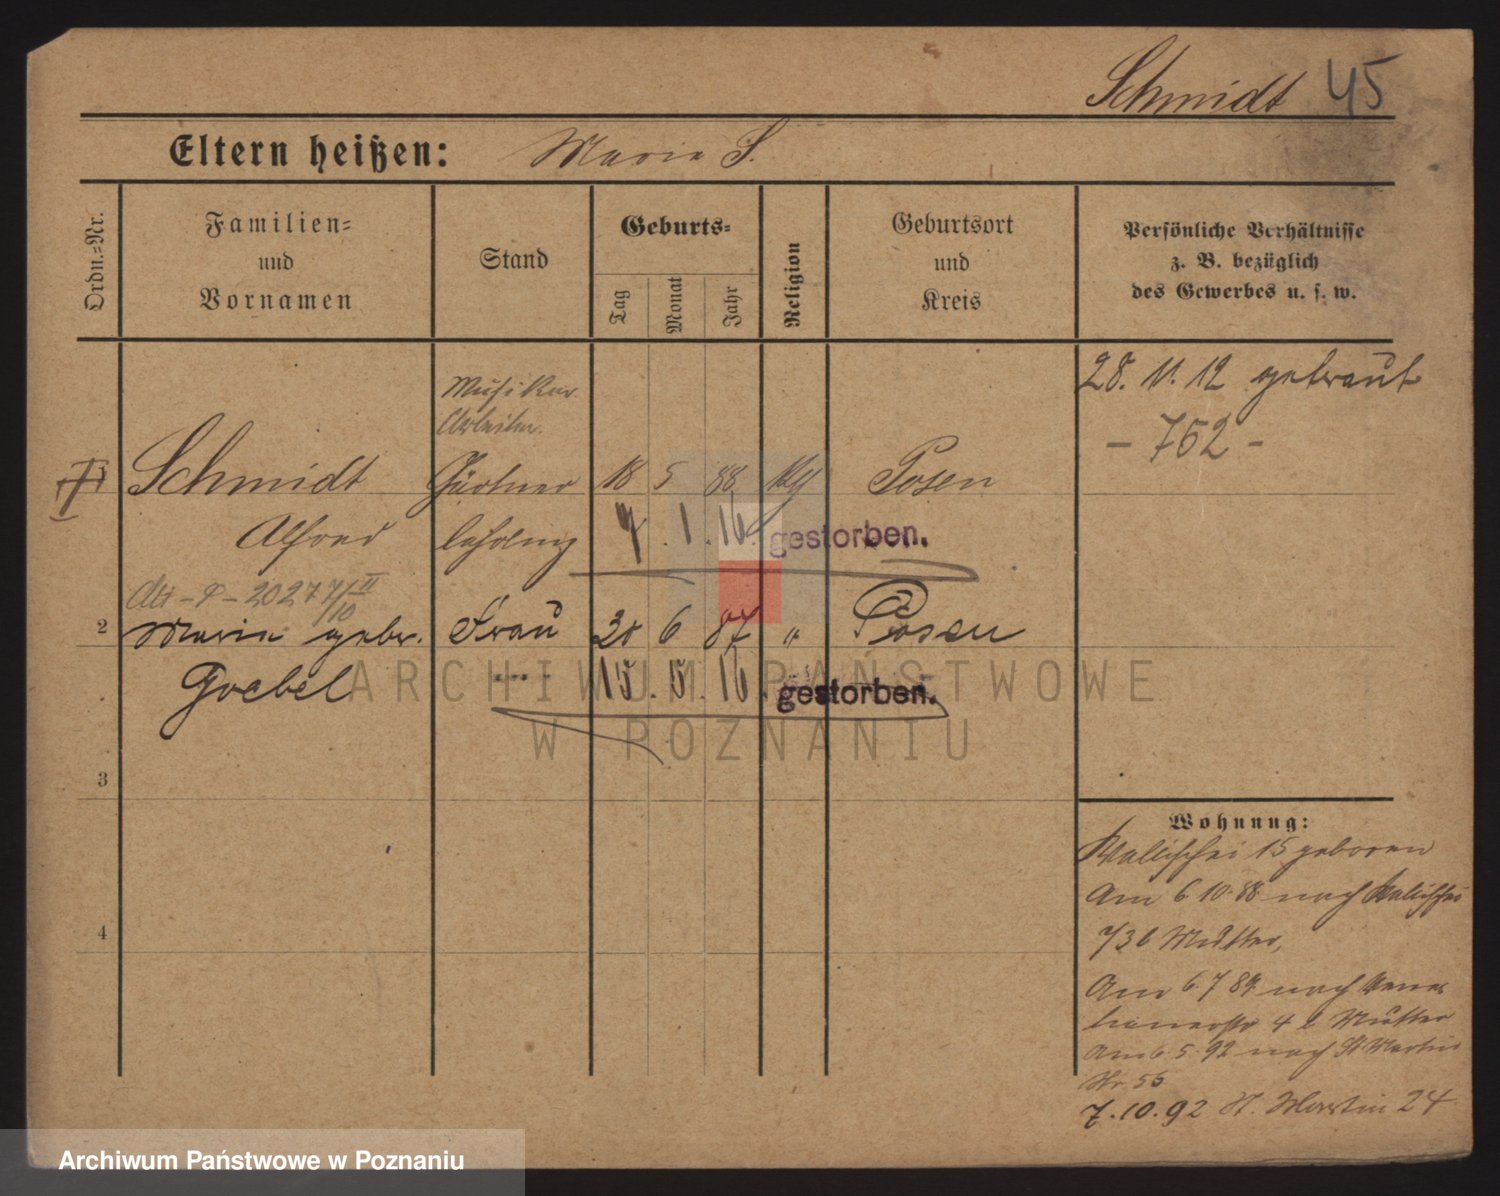 Schmidt 45
Eltern heißen: Maria S.
Ordn.=Nr.
Familien=
und
Vornamen
Stand
Geburts=
Tag
Monat
Jahr
Religion
Geburtsort
und
Kreis
Persönliche Verhältnisse
z. B. bezüglich
des Gewerbes u. s. w.
28. 11. 12 getraut
- 762 -
Musiker
Arbeiter
1 Schmidt Gärtner 18 5 88 Posen
Alfred lehrling 1. 16. gestorben.
2 Maria gebr. Frau 6 87 " Posen
Goebel 15. 5. 16. gestorben.
3
4
Wohnung:
Wallischei 15 geboren
Am 6 10 88 nach Wallischei
73 b Mutter,
Am 6 7 89 nach
4 Mutter
Am 6 5 92 nach St Martin
Nr 56
7.10.92 St. Martin 24
ARCHIWUM PAŃSTWOWE
W POZNANIU
Archiwum Państwowe w Poznaniu